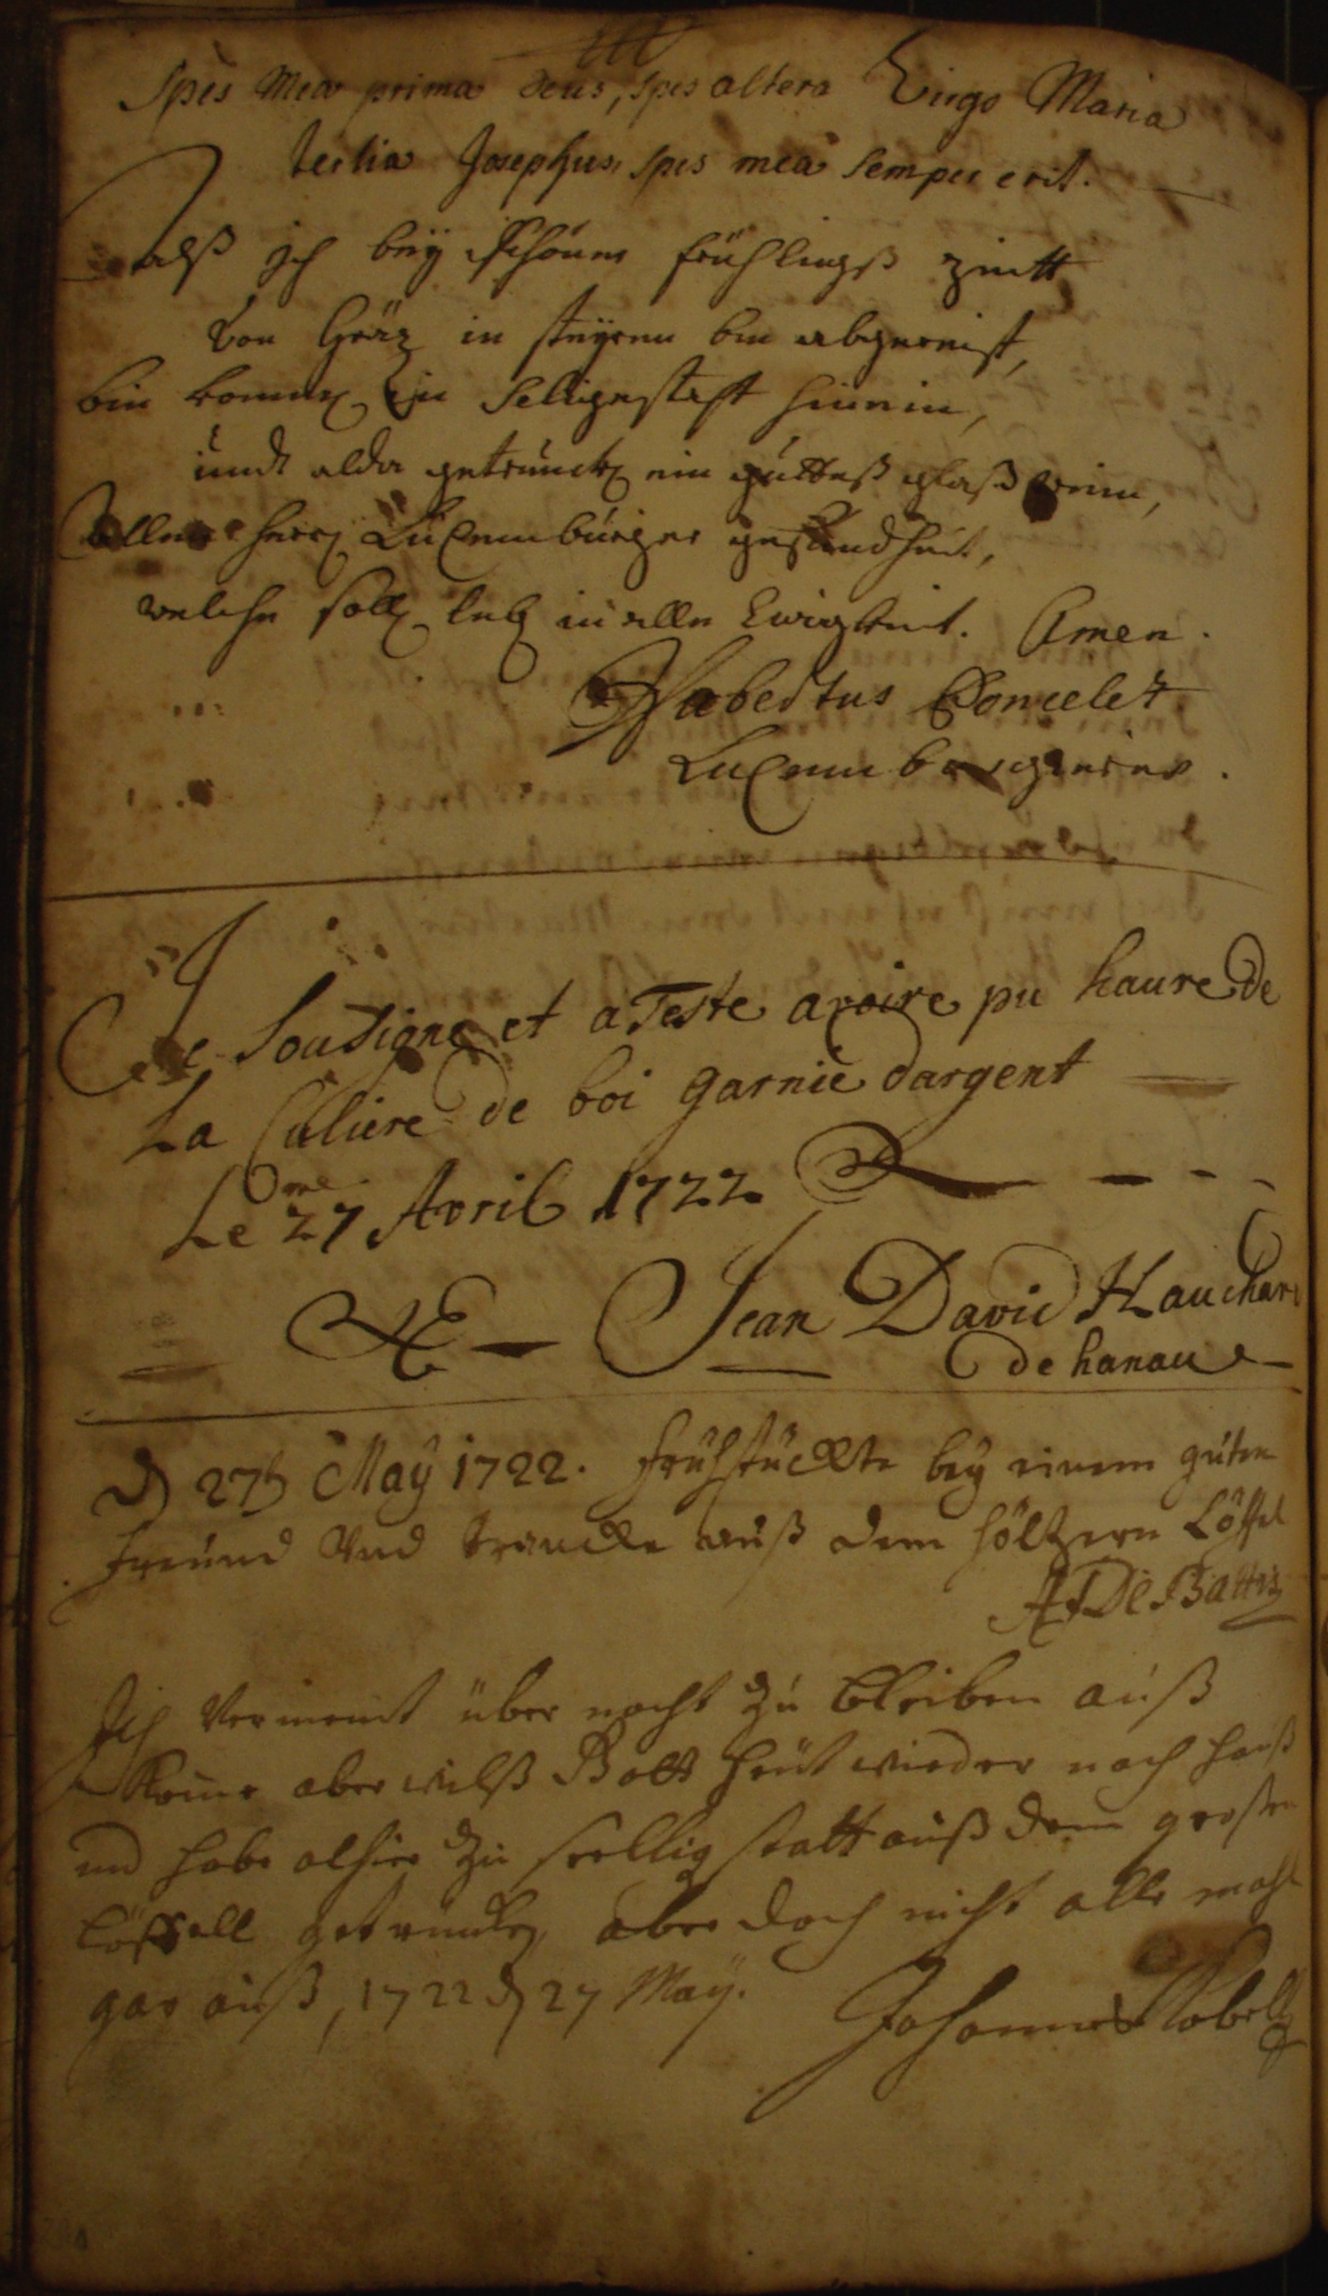 Spes Mea prima Deus, spes altera Virgo Maria
tertia Josephus, spes mea semper erit.
Alß ich bey schöner frühlingß zeitt
Von Gräz in steyren bin abgereist,
bin kommen zu Seligestatt hinein,
undt alda getrunck ein guttes glaß wein,
Aller herrn Luxemburger gesundheit,
welche soll leb in alle Ewigkeit. Amen.
Hubertus Poncelet
Luxemburgensis.
Je Soudigne et a Teste avoire pu haure De
La Culiere de boi garnie dargent
Le 27me Avril 1722
Jean David Hauchar
de hanau
D 27t May 1722. frühstückte bey einem guten
freund Und trancke auß dem höltzern Löffel
A De Battis
Ich Vermeint über nacht zu bleiben auß
Kome aber wilß Gott heut wieder nach hauß
und habe alhier zu seelligstatt auß dem grosen
Löffell getruncken, aber doch nicht alle mahl
gar auß, 1722 D 27 May.
Johannes Kobell